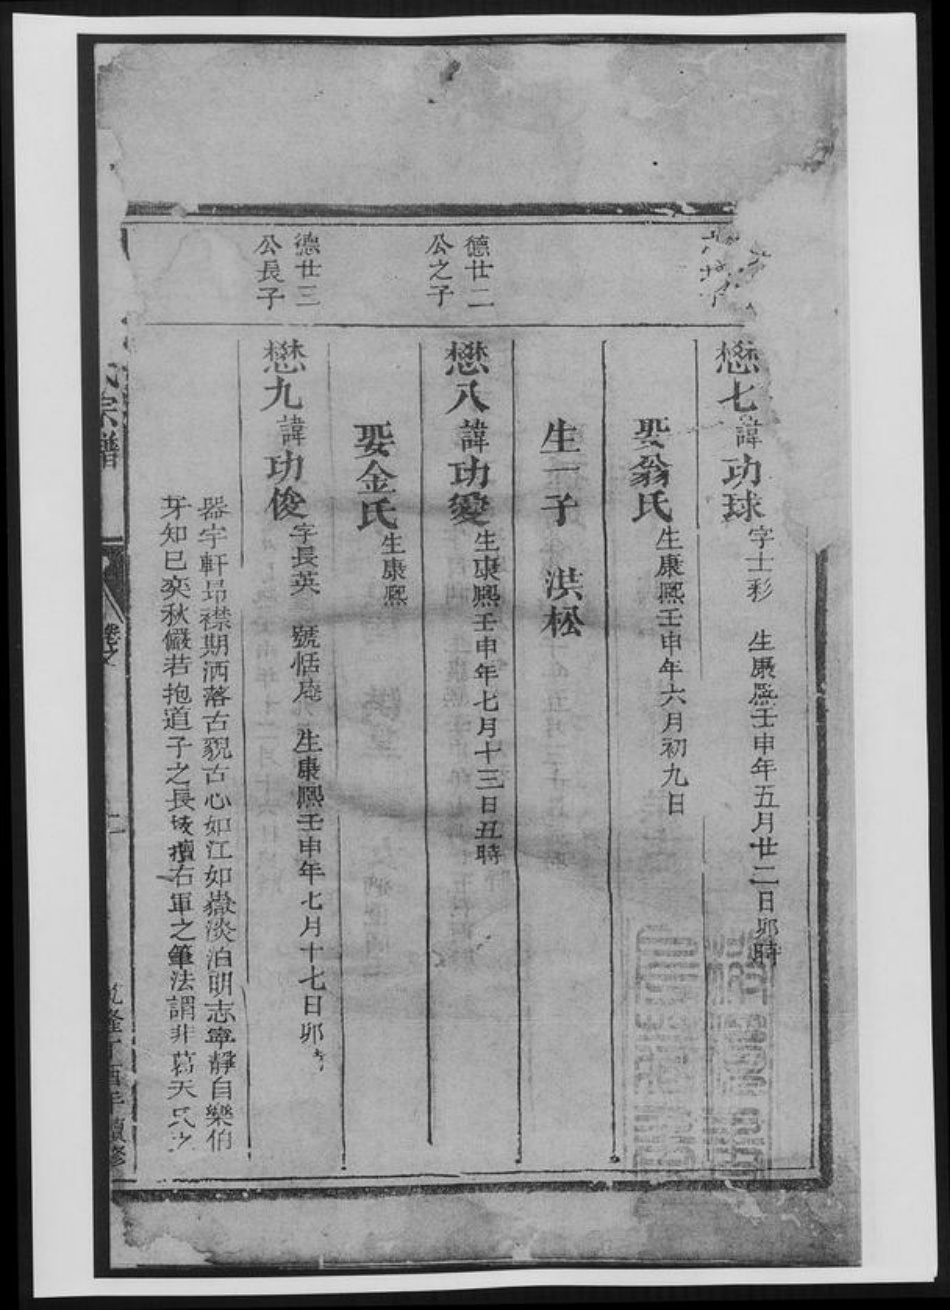 懋七諱功球字士彩 生康熙壬申年五月廿二日卯時
娶翁氏生康熙壬申年六月初九日
生一子 洪松
德廿二
公之子
懋八諱功愛生康熙壬申年七月十三日丑時
娶金氏生康熙
德廿三
公長子
懋九諱功俊字長英 號恬庵 生康熙壬申年七月十七日卯
器宇軒昂襟期洒落古貌古心如江如嶽淡泊明志寧靜自樂伯
牙知已奕秋儼若抱道子之長技擅右軍之筆法謂非葛天氏之
氏宗譜
卷之
乾隆丁酉年續修